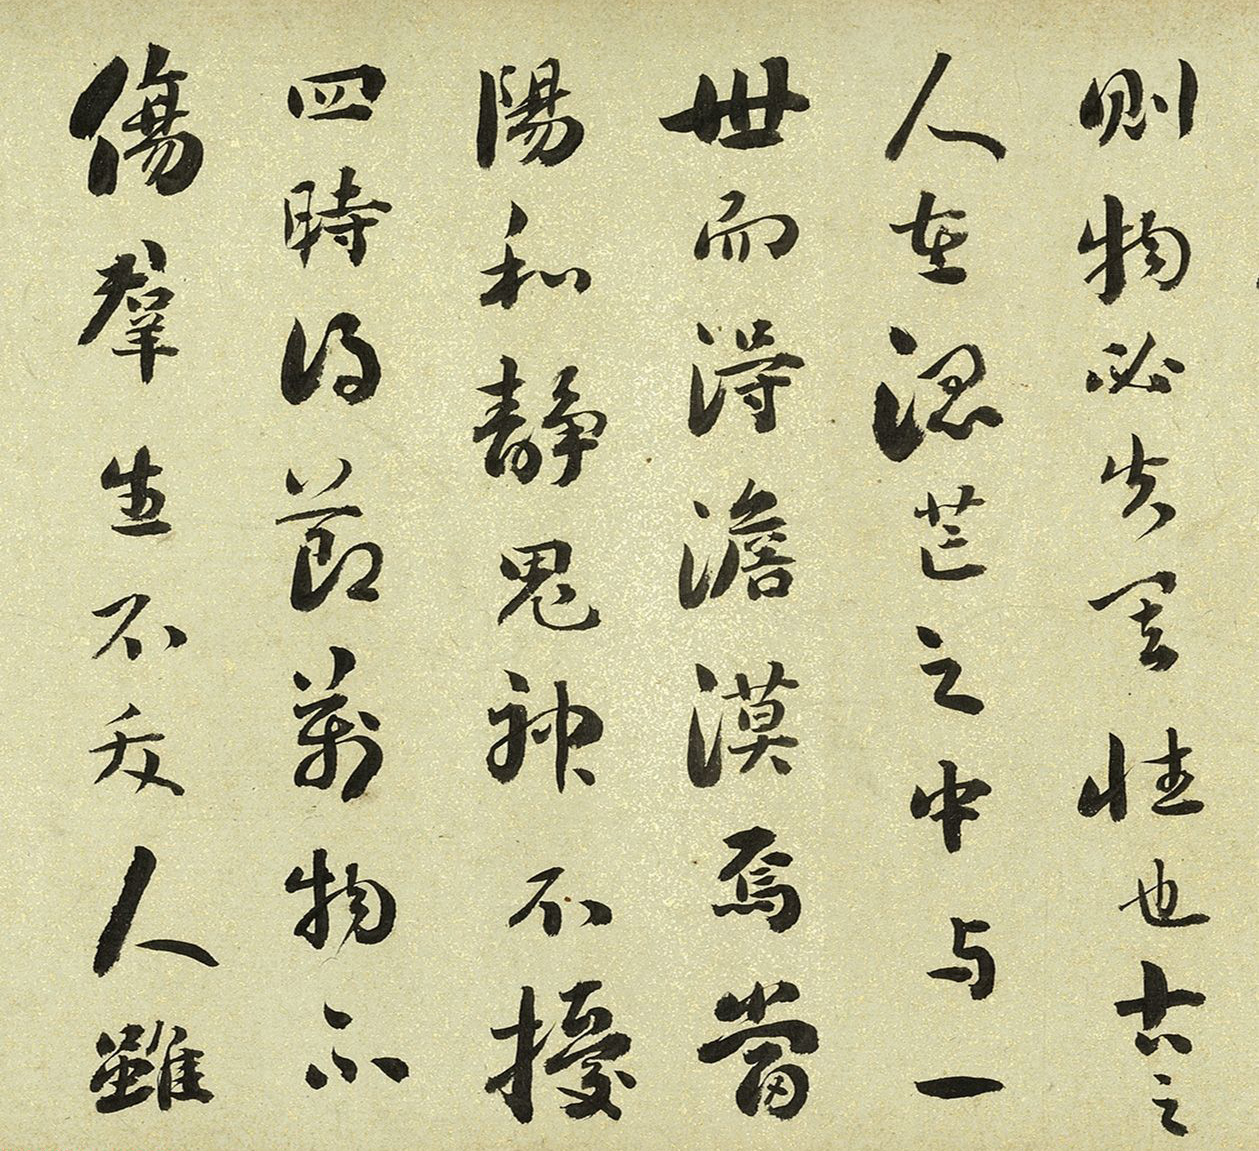 則物必失其性也古之
人在混芒之中与一
世而得澹漠焉當
陽和靜鬼神不擾
四時得節萬物不
傷羣生不夭人雖